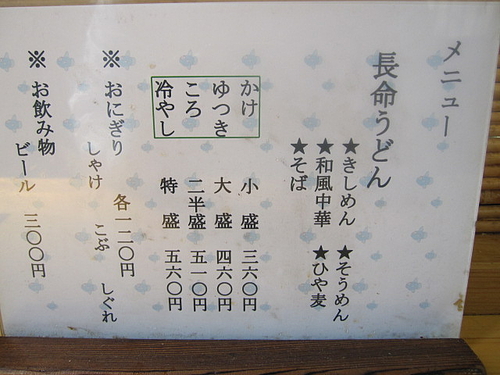 メニュー
長命うどん
★きしめん ★そうめん
★和風中華 ★ひや麦
★そば
かけ
ゆつき
ころ
冷やし
小盛 三六〇円
大盛 四六〇円
二半盛 五一〇円
特盛 五六〇円
※おにぎり 各一二〇円
しゃけ こぶ しぐれ
※お飲み物
ビール 三〇〇円